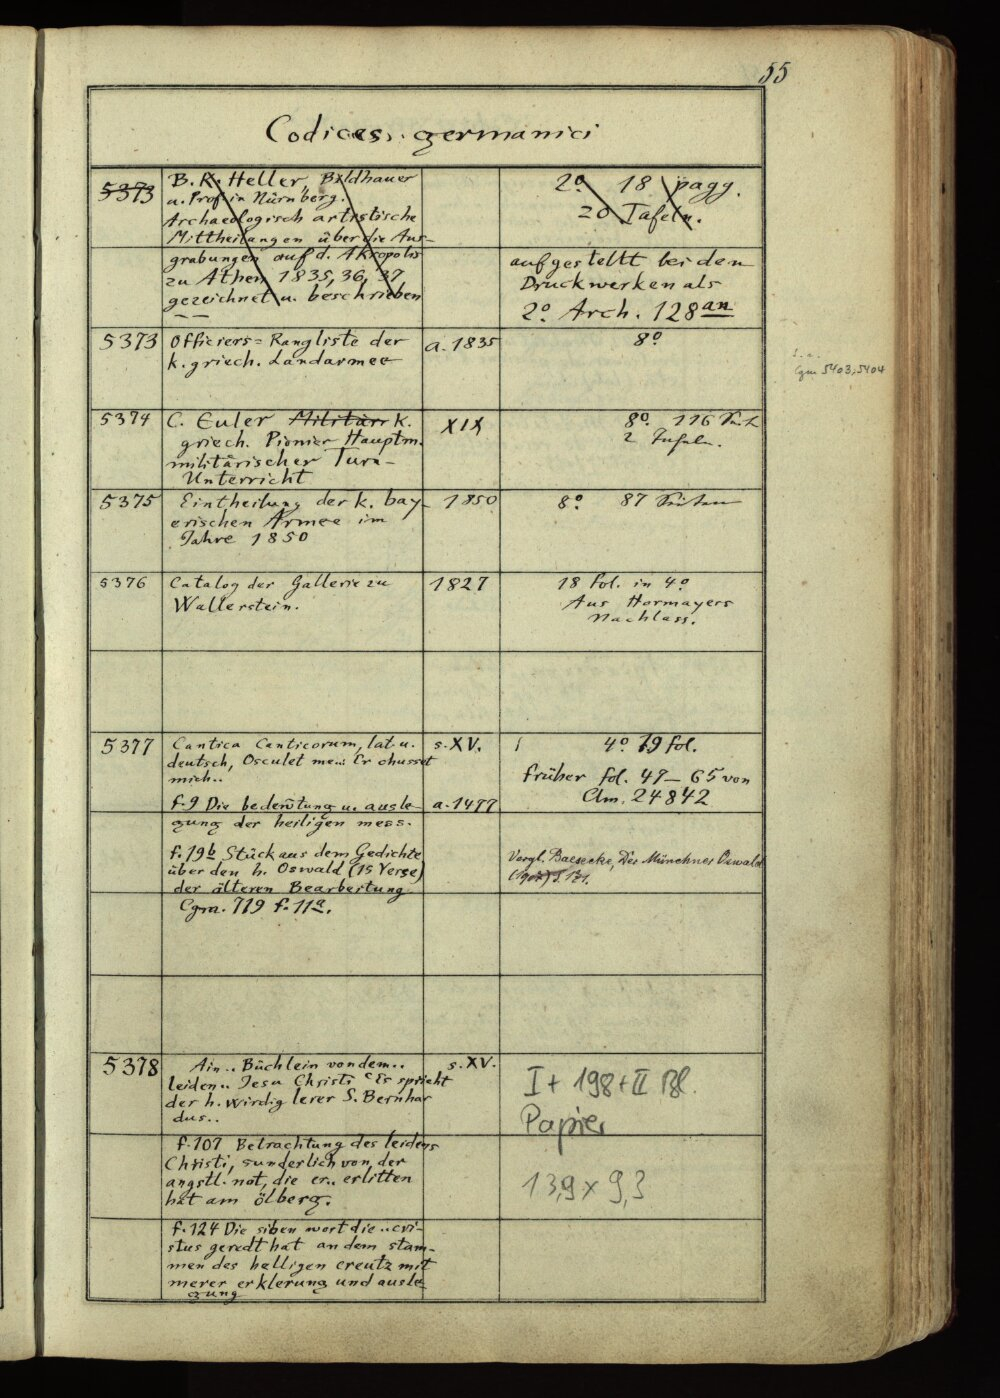 55
Codices germanici
5373
B. K. Heller, Bildhauer
u. Prof. in Nürnberg.
Archaeologisch artistische
Mittheilungen über die Aus-
grabungen auf d. Akropolis
zu Athen 1835, 36, 37
gezeichnet u. beschrieben
2° 18 pagg.
20 Tafeln.
aufgestellt bei den
Druckwerken als
2° Arch. 128 an
5373
Officiers=Rangliste der
k. griech. Landarmee
a. 1835
8°
s. a.
Cgm 5403; 5404
5374
C. Euler Militär k.
griech. Pionier Hauptm.
militärischer Turn-
Unterricht
XIX
8°. 116 Seit.
2 Tafeln.
5375
Eintheilung der k. bay-
erischen Armee im
Jahre 1850
1850
8° 87 Seiten
5376
Catalog der Gallerie zu
Wallerstein.
1827
18 fol. in 4°
Aus Hormayers
Nachlass.
5377
Cantica Canticorum, lat. u.
deutsch, Osculet me..: Er chusset
mich..
s. XV.
4° 19 fol.
früher fol. 47–65 von
Clm. 24842
f. 9 Die bedeutung u. ausle-
gung der heiligen mess.
a. 1477
f. 19b Stück aus dem Gedichte
über den h. Oswald (15 Verse)
der älteren Bearbeitung
Cgm. 719 f. 11a.
Vergl. Baesecke, Der Münchner Oswald
(1907) S. 121.
5378
Ain.. Büchlein von dem..
leiden.. Jesu Christi "Es spricht
der h. wirdig lerer S. Bernhar
dus..
s. XV.
I + 198 + II Bl.
Papier
f. 107 Betrachtung des leidens
Christi, sunderlich von der
angstl. not, die er.. erlitten
hat am ölberg.
13,9 x 9,3
f. 124 Die siben wort die ..cri-
stus geredt hat an dem stam-
men des heiligen creutz mit
merer erklerung und ausle
gung